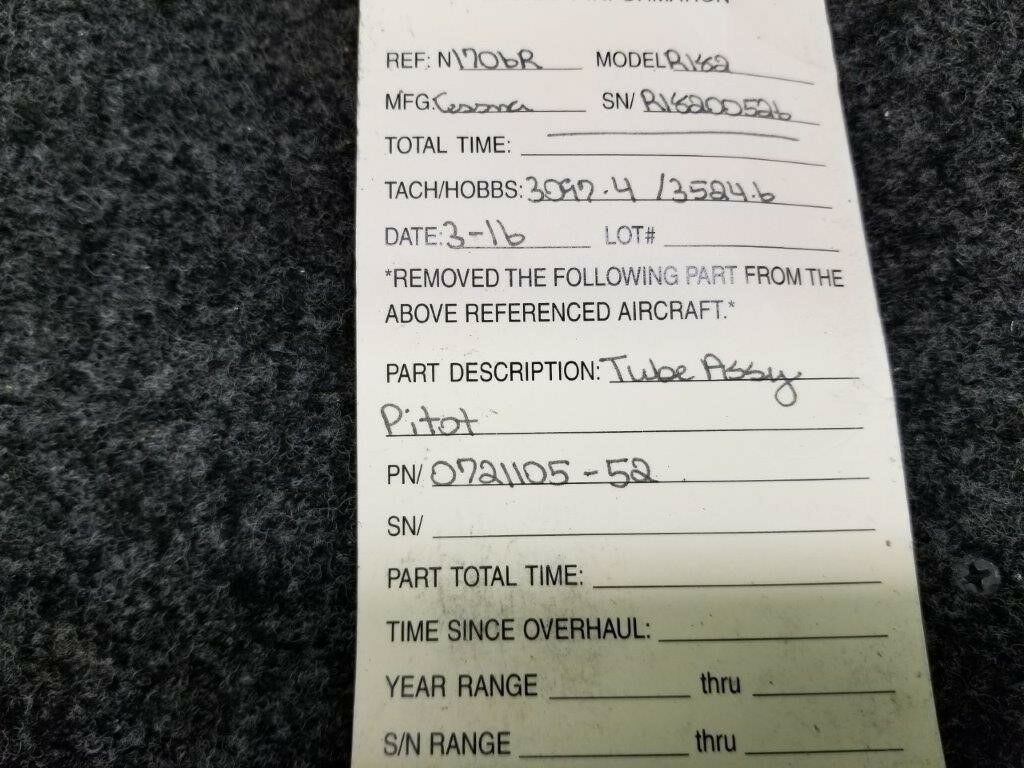 REF: N1706R MODEL R182
MFG: Cessna SN/ R18200526
TOTAL TIME:
TACH/HOBBS: 3097.4 /3524.6
DATE: 3-16 LOT#
*REMOVED THE FOLLOWING PART FROM THE
ABOVE REFERENCED AIRCRAFT.*
PART DESCRIPTION: Tube Assy
Pitot
PN/ 0721105-52
SN/
PART TOTAL TIME:
TIME SINCE OVERHAUL:
YEAR RANGE thru
S/N RANGE thru